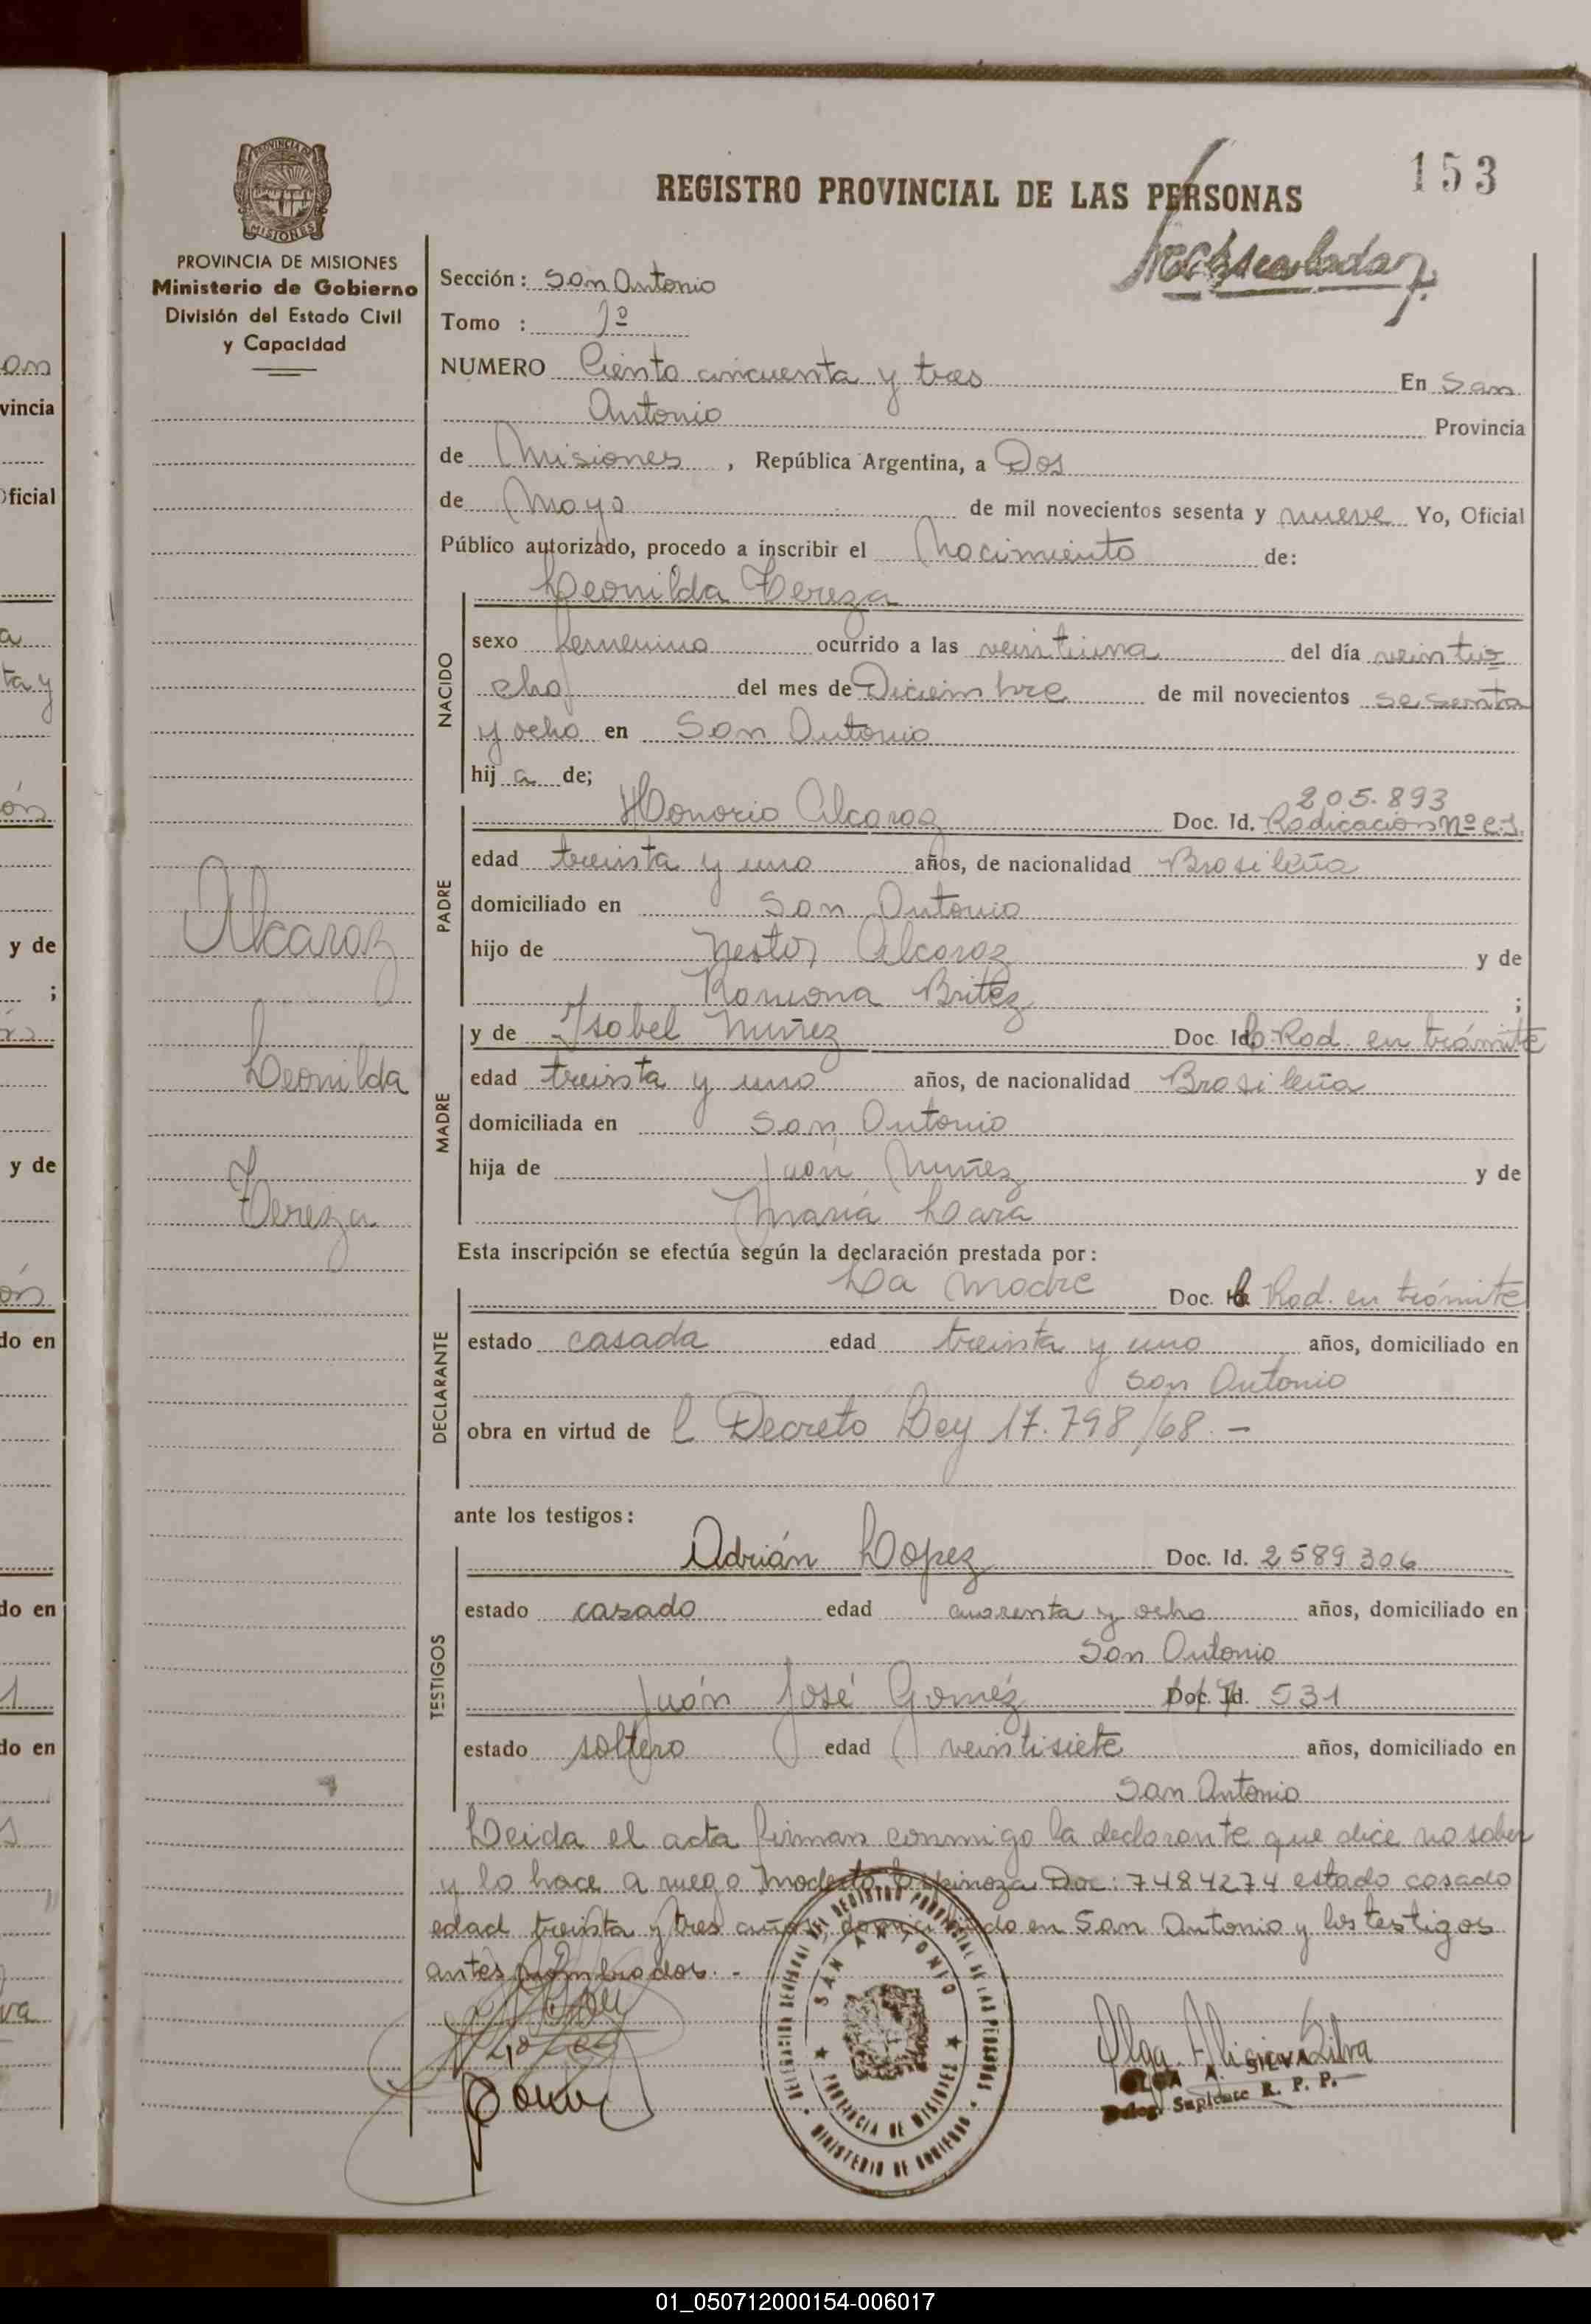 153
REGISTRO PROVINCIAL DE LAS PERSONAS
PROVINCIA DE MISIONES
Ministerio de Gobierno
División del Estado Civil
y Capacidad
Sección: San Antonio
Tomo : 1º
NUMERO Ciento cincuenta y tres En San
Antonio Provincia
de Misiones, República Argentina, a Dos
de Mayo de mil novecientos sesenta y nueve Yo, Oficial
Público autorizado, procedo a inscribir el Nacimiento de:
Leonilda Tereza
NACIDO
sexo femenino ocurrido a las veintiuna del día veintio
cho del mes de Diciembre de mil novecientos sesenta
y ocho en San Antonio
hij a de;
PADRE
205.893
Honorio Alcaraz Doc. Id. Radicación Nº C.I.
edad treinta y uno años, de nacionalidad Brasileña
domiciliado en San Antonio
hijo de Nestor Alcaraz y de
Ramona Britez ;
MADRE
y de Isabel Nuñez Doc. Id. Rad. en trámite
edad treinta y uno años, de nacionalidad Brasileña
domiciliada en San Antonio
hija de Juan Nuñez y de
María Lara
Alcaraz
Leonilda
Tereza
Esta inscripción se efectúa según la declaración prestada por:
DECLARANTE
La Madre Doc. Rad. en trámite
estado casada edad treinta y uno años, domiciliado en
San Antonio
obra en virtud de l Decreto Ley 17.798/68.-
ante los testigos:
TESTIGOS
Adrián Lopez Doc. Id. 2589306
estado casado edad cuarenta y ocho años, domiciliado en
San Antonio
Juán José Goméz Doc. Id. 531
estado soltero edad veintisiete años, domiciliado en
San Antonio
Leida el acta firman conmigo la declarante que dice no saber
y lo hace a ruego Modesto Espinoza Doc: 7484274 estado casado
edad treinta y tres años, domiciliado en San Antonio y los testigos
antes nombrados.-
DELEGACION SECCIONAL DEL REGISTRO PROVINCIAL DE LAS PERSONAS
SAN ANTONIO
PROVINCIA DE MISIONES
MINISTERIO DE GOBIERNO
Olga Alicia Silva
OLGA A. SILVA
Deleg. Suplente R. P. P.
01_050712000154-006017